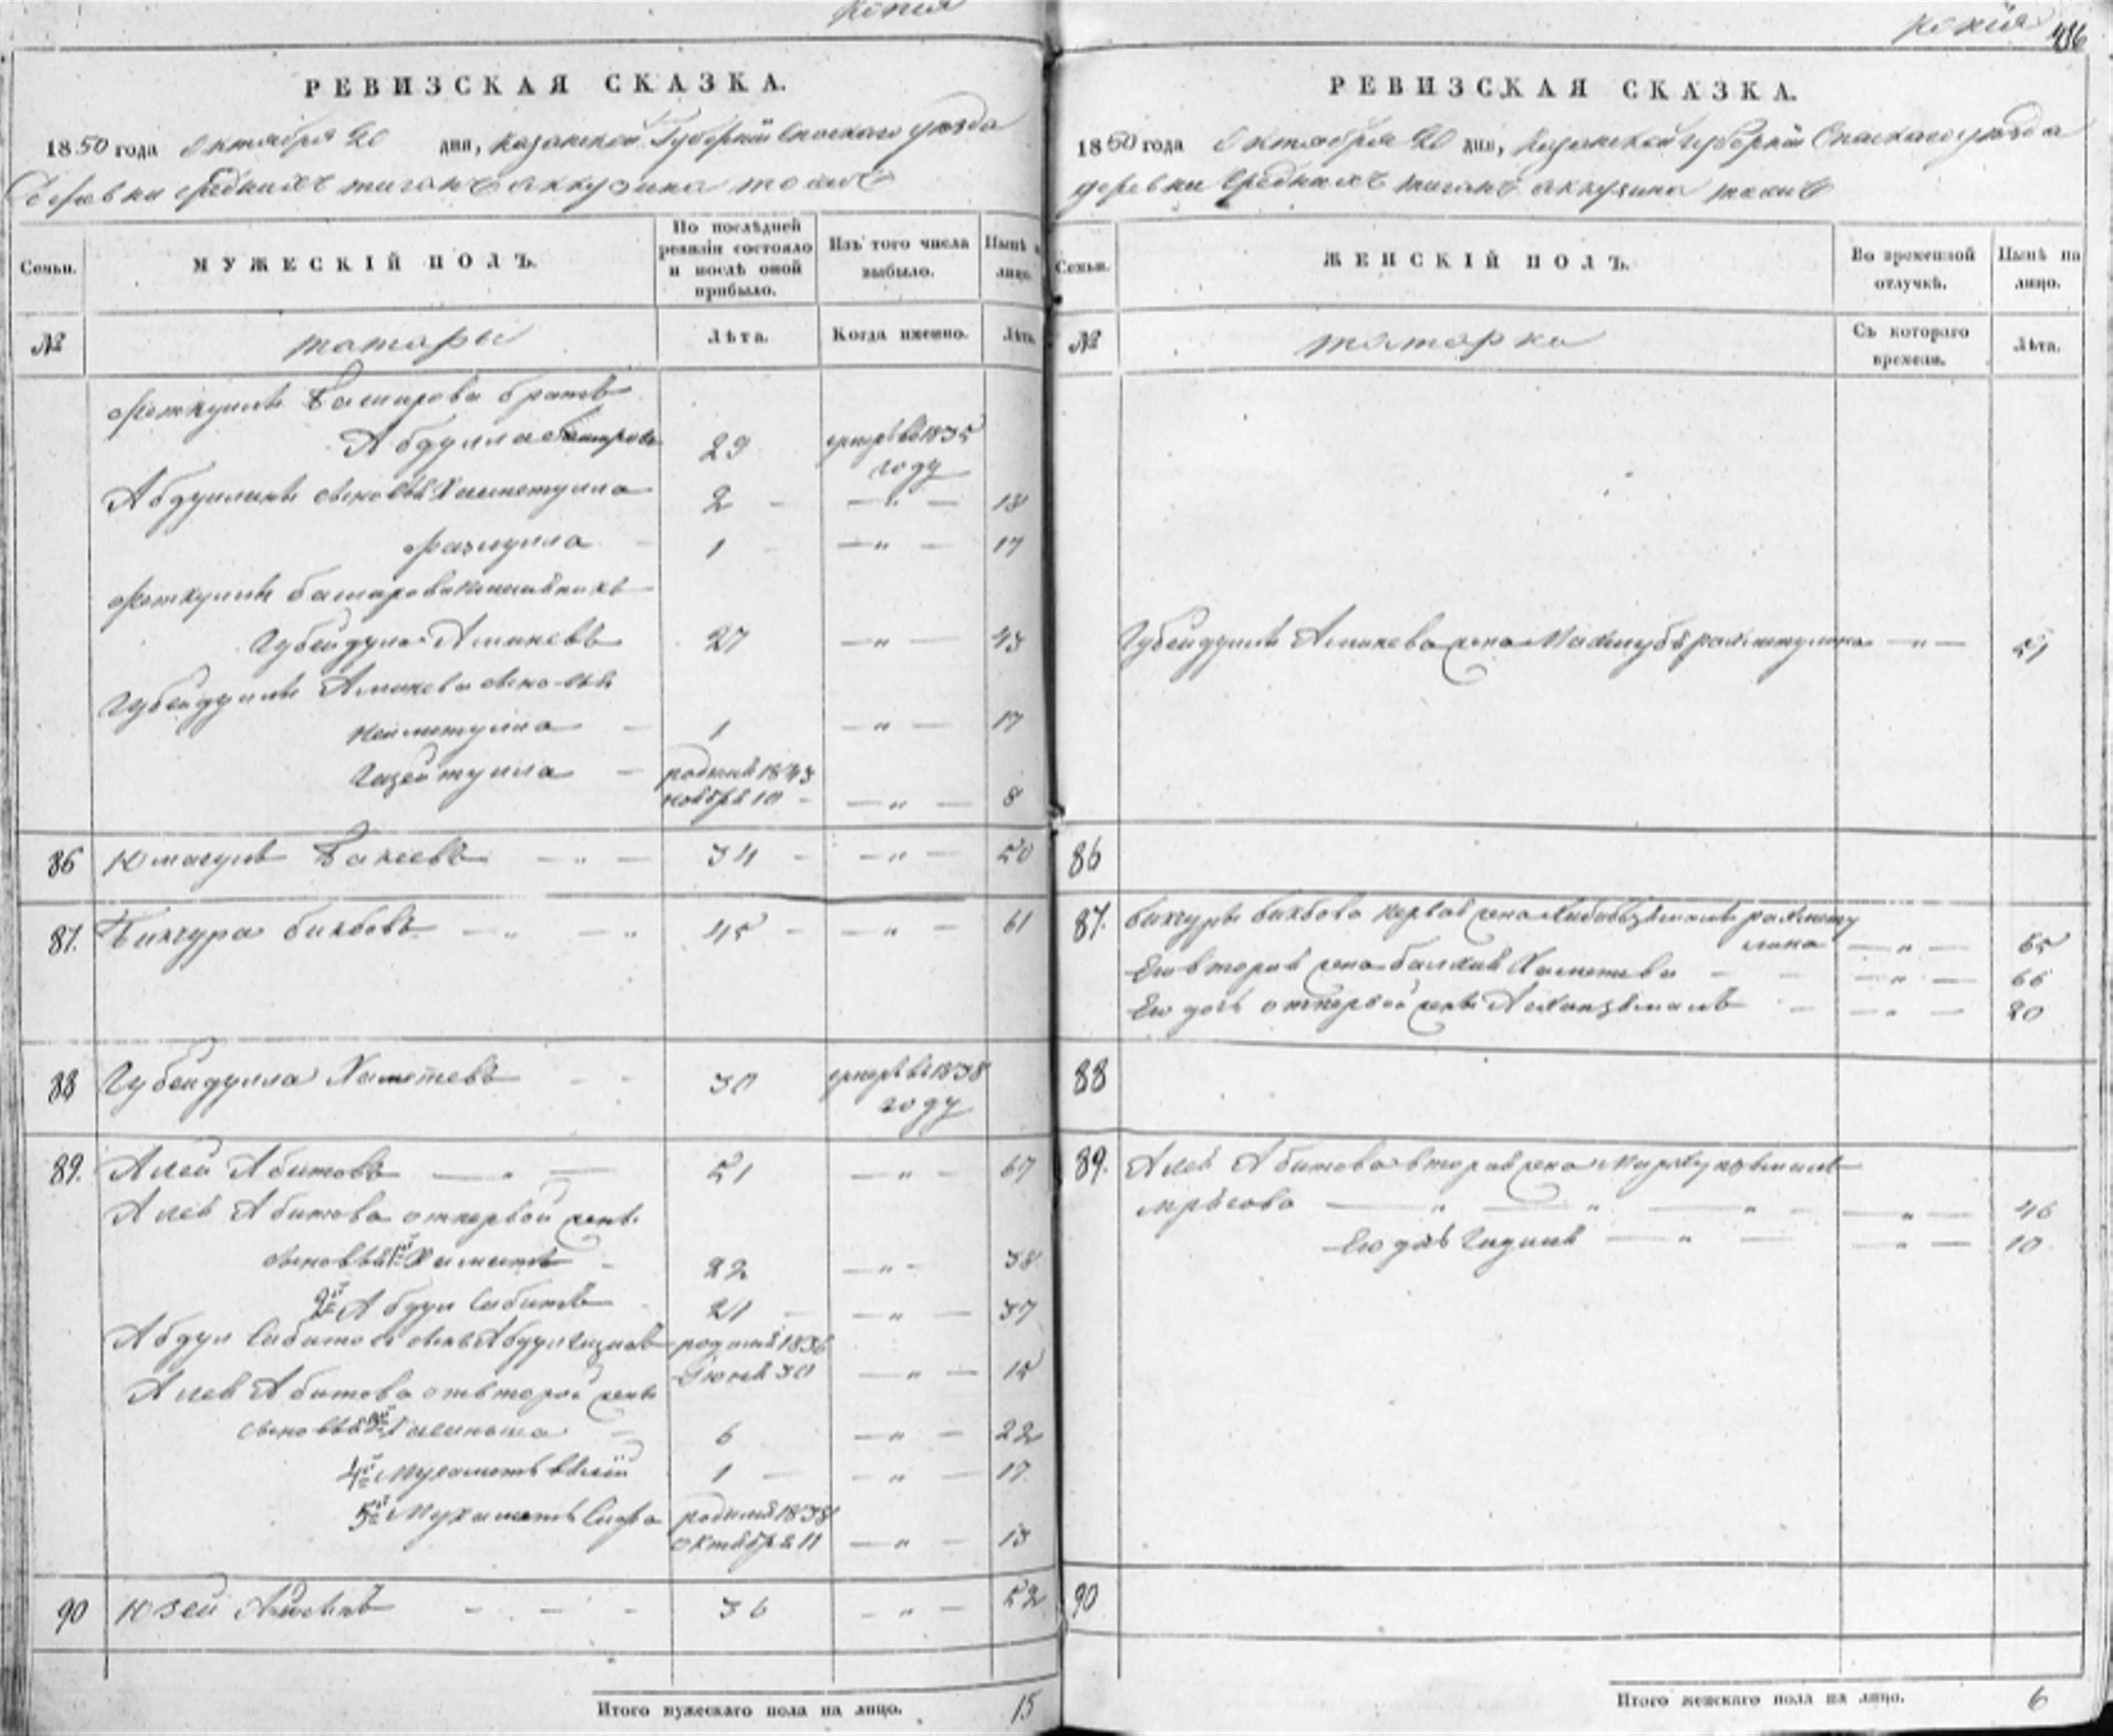 Копія
РЕВИЗСКАЯ СКАЗКА.
1850 года Октября 20 дня, Казанской Губерніи Спаскаго уѣзда
Деревни Среднихъ тиганъ аккузина тожъ
Семьи. МУЖЕСКІЙ ПОЛЪ. По послѣдней ревизіи состояло и послѣ оной прибыло. Изъ того числа выбыло. Нынѣ на лицо.
№ татары Лѣта. Когда именно. Лѣта.
Фаткуллы Башарова братъ
Абдулла Башаровъ 29 умре въ 1835
году
Абдуллины сыновья Хаметулла 2 — „ — 18
Фазлулла 1 — „ — 17
Фаткуллы башарова племянникъ
Губейдулла Аминевъ 27 — „ — 43
Губейдуллы Аминева сыновья
1 — „ — 17
родился 1843
ноября 10 — „ — 8
86 Юмагулъ Бакеевъ — „ — 34 — „ — 50
87. Бикчура бикбовъ — „ — „ 45 — „ — 61
88 Губейдулла Хаметевъ 30 умре въ 1838
году
89. Алей Абитовъ — „ — 51 — „ — 67
Алея Абитова от первой жены
сыновья 1й 22 — „ — 38
2й Абдул Сабитъ 21 — „ — 37
Абдул Сабитова сынъ родился 1836
Іюня 30 — „ — 15
Алея Абитова от второй жены
сыновья 6 — „ — 22
4й 1 — „ — 17
5й Мухаметъ Сафа родился 1838
октября 11 — „ — 13
90 Юзей 36 — „ — 52
Итого мужескаго пола на лицо. 15
копія 436
РЕВИЗСКАЯ СКАЗКА.
1850 года Октября 20 дня, Казанской губерніи Спаскаго уѣзда
деревни Среднихъ тиганъ аккузина тожъ
Семьи. ЖЕНСКІЙ ПОЛЪ. Во временной отлучкѣ. Нынѣ на лицо.
№ татарки Съ котораго времени. Лѣта.
Губейдуллы Аминева жена рахметуллина — „ — 51
86
87. бикчуры бикбова первая жена рахмету
лина — „ — 65
Его вторая жена Хаметева — „ — 66
Его дочь от первой жены — „ — 20
88
89. Алея Абитова вторая жена
— „ — „ — „ — — „ — 46
Его дочь — „ — — „ — 10
90
Итого женскаго пола на лицо. 6